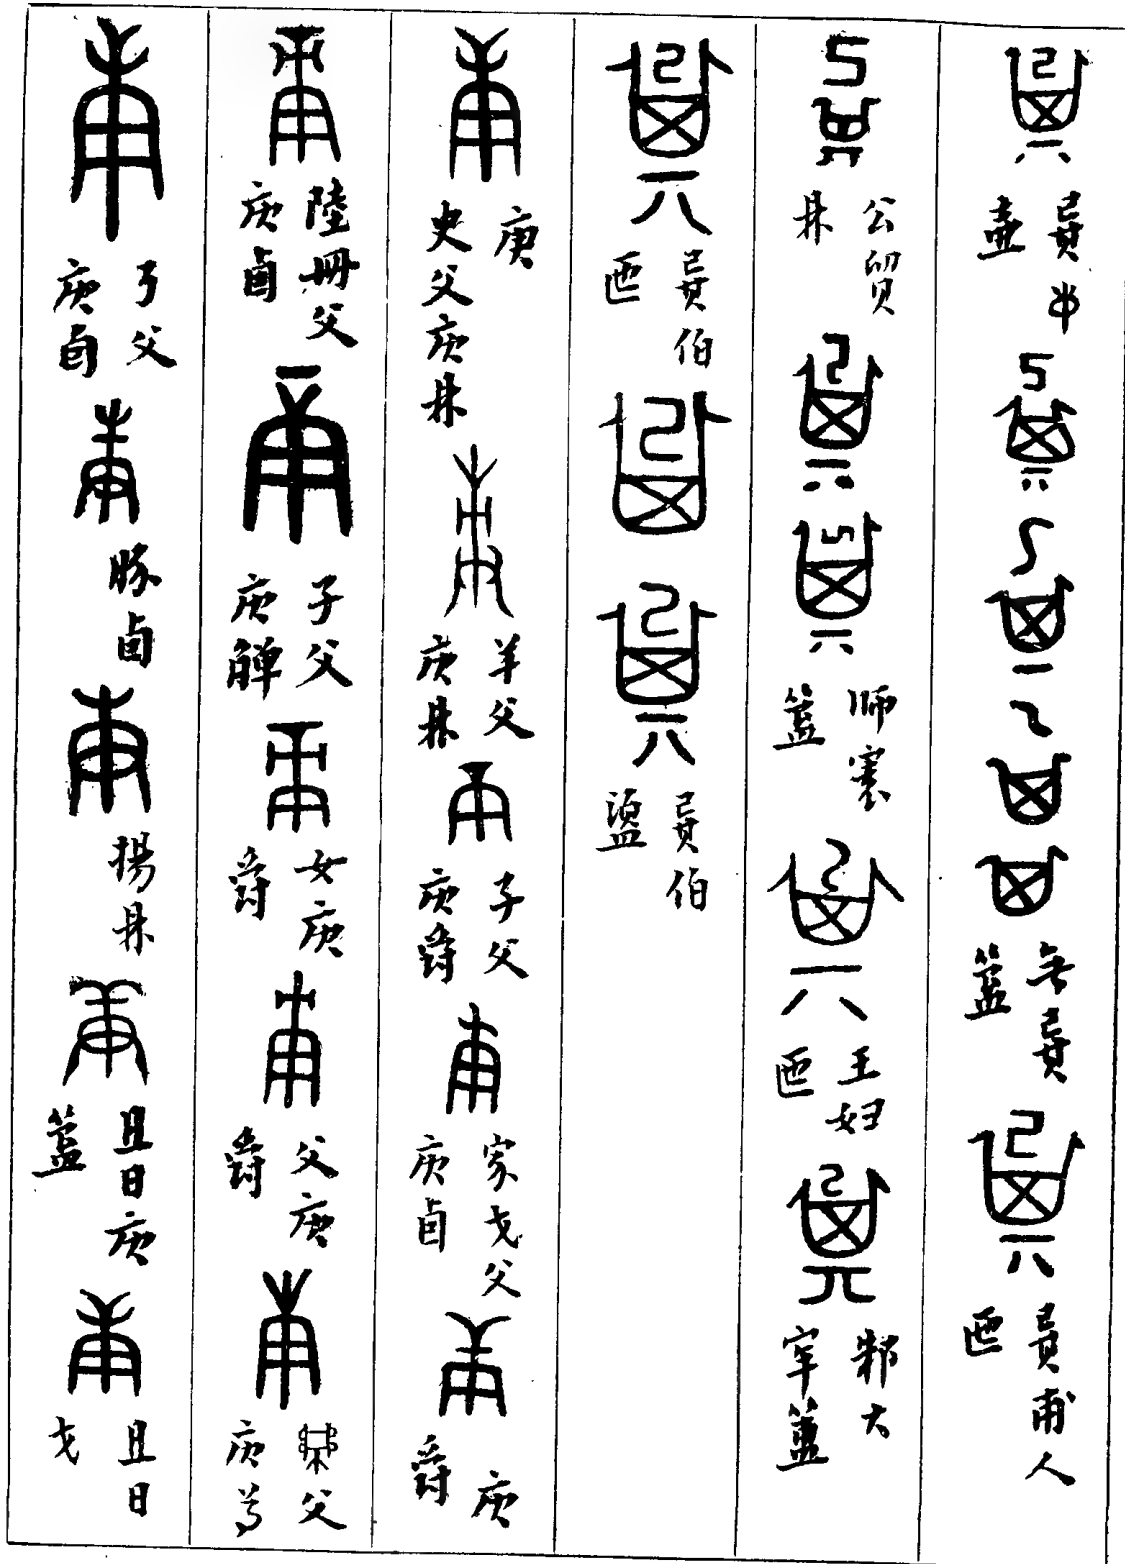 㠱中壺
無㠱簋
㠱甫人匜
公貿鼎
師寰簋
王婦匜
邾大宰簠
㠱伯匜
㠱伯盨
庚
史父庚鼎
羊父庚鼎
子父庚爵
家戈父庚卣
庚爵
陸冊父庚卣
子父庚觶
女庚爵
父庚爵
父庚尊
弓父庚卣
豚卣
揚鼎
且日庚簋
且日戈